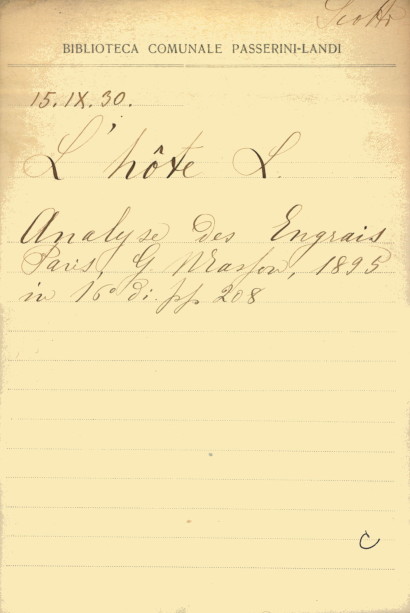 Scotti
BIBLIOTECA COMUNALE PASSERINI-LANDI
15.IX.30.
L'hôte L.
Analyse des Engrais
Paris, G Masson, 1895
in 16° di pp 208
C